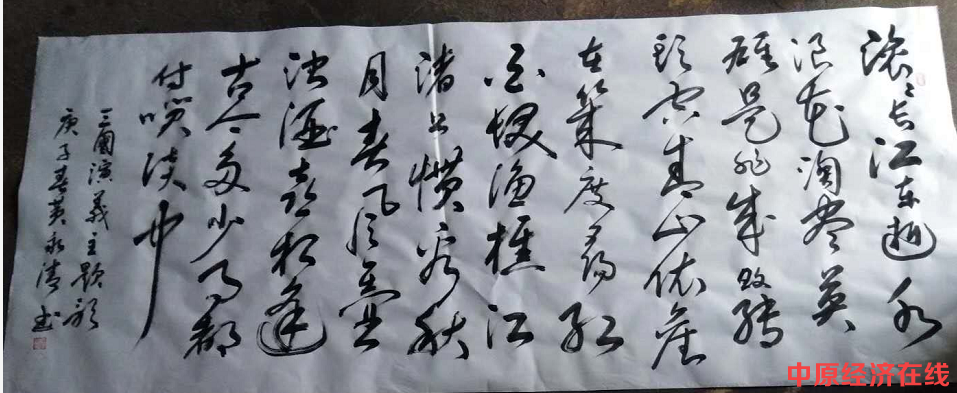 滚滚长江东逝水
浪花淘尽英
雄是非成败转
头空青山依旧
在几度夕阳红
白发渔樵江
渚上惯看秋
月春风一壶
浊酒喜相逢
古今多少事都
付笑谈中
三國演義主题歌
庚子春黄永清书
中原经济在线